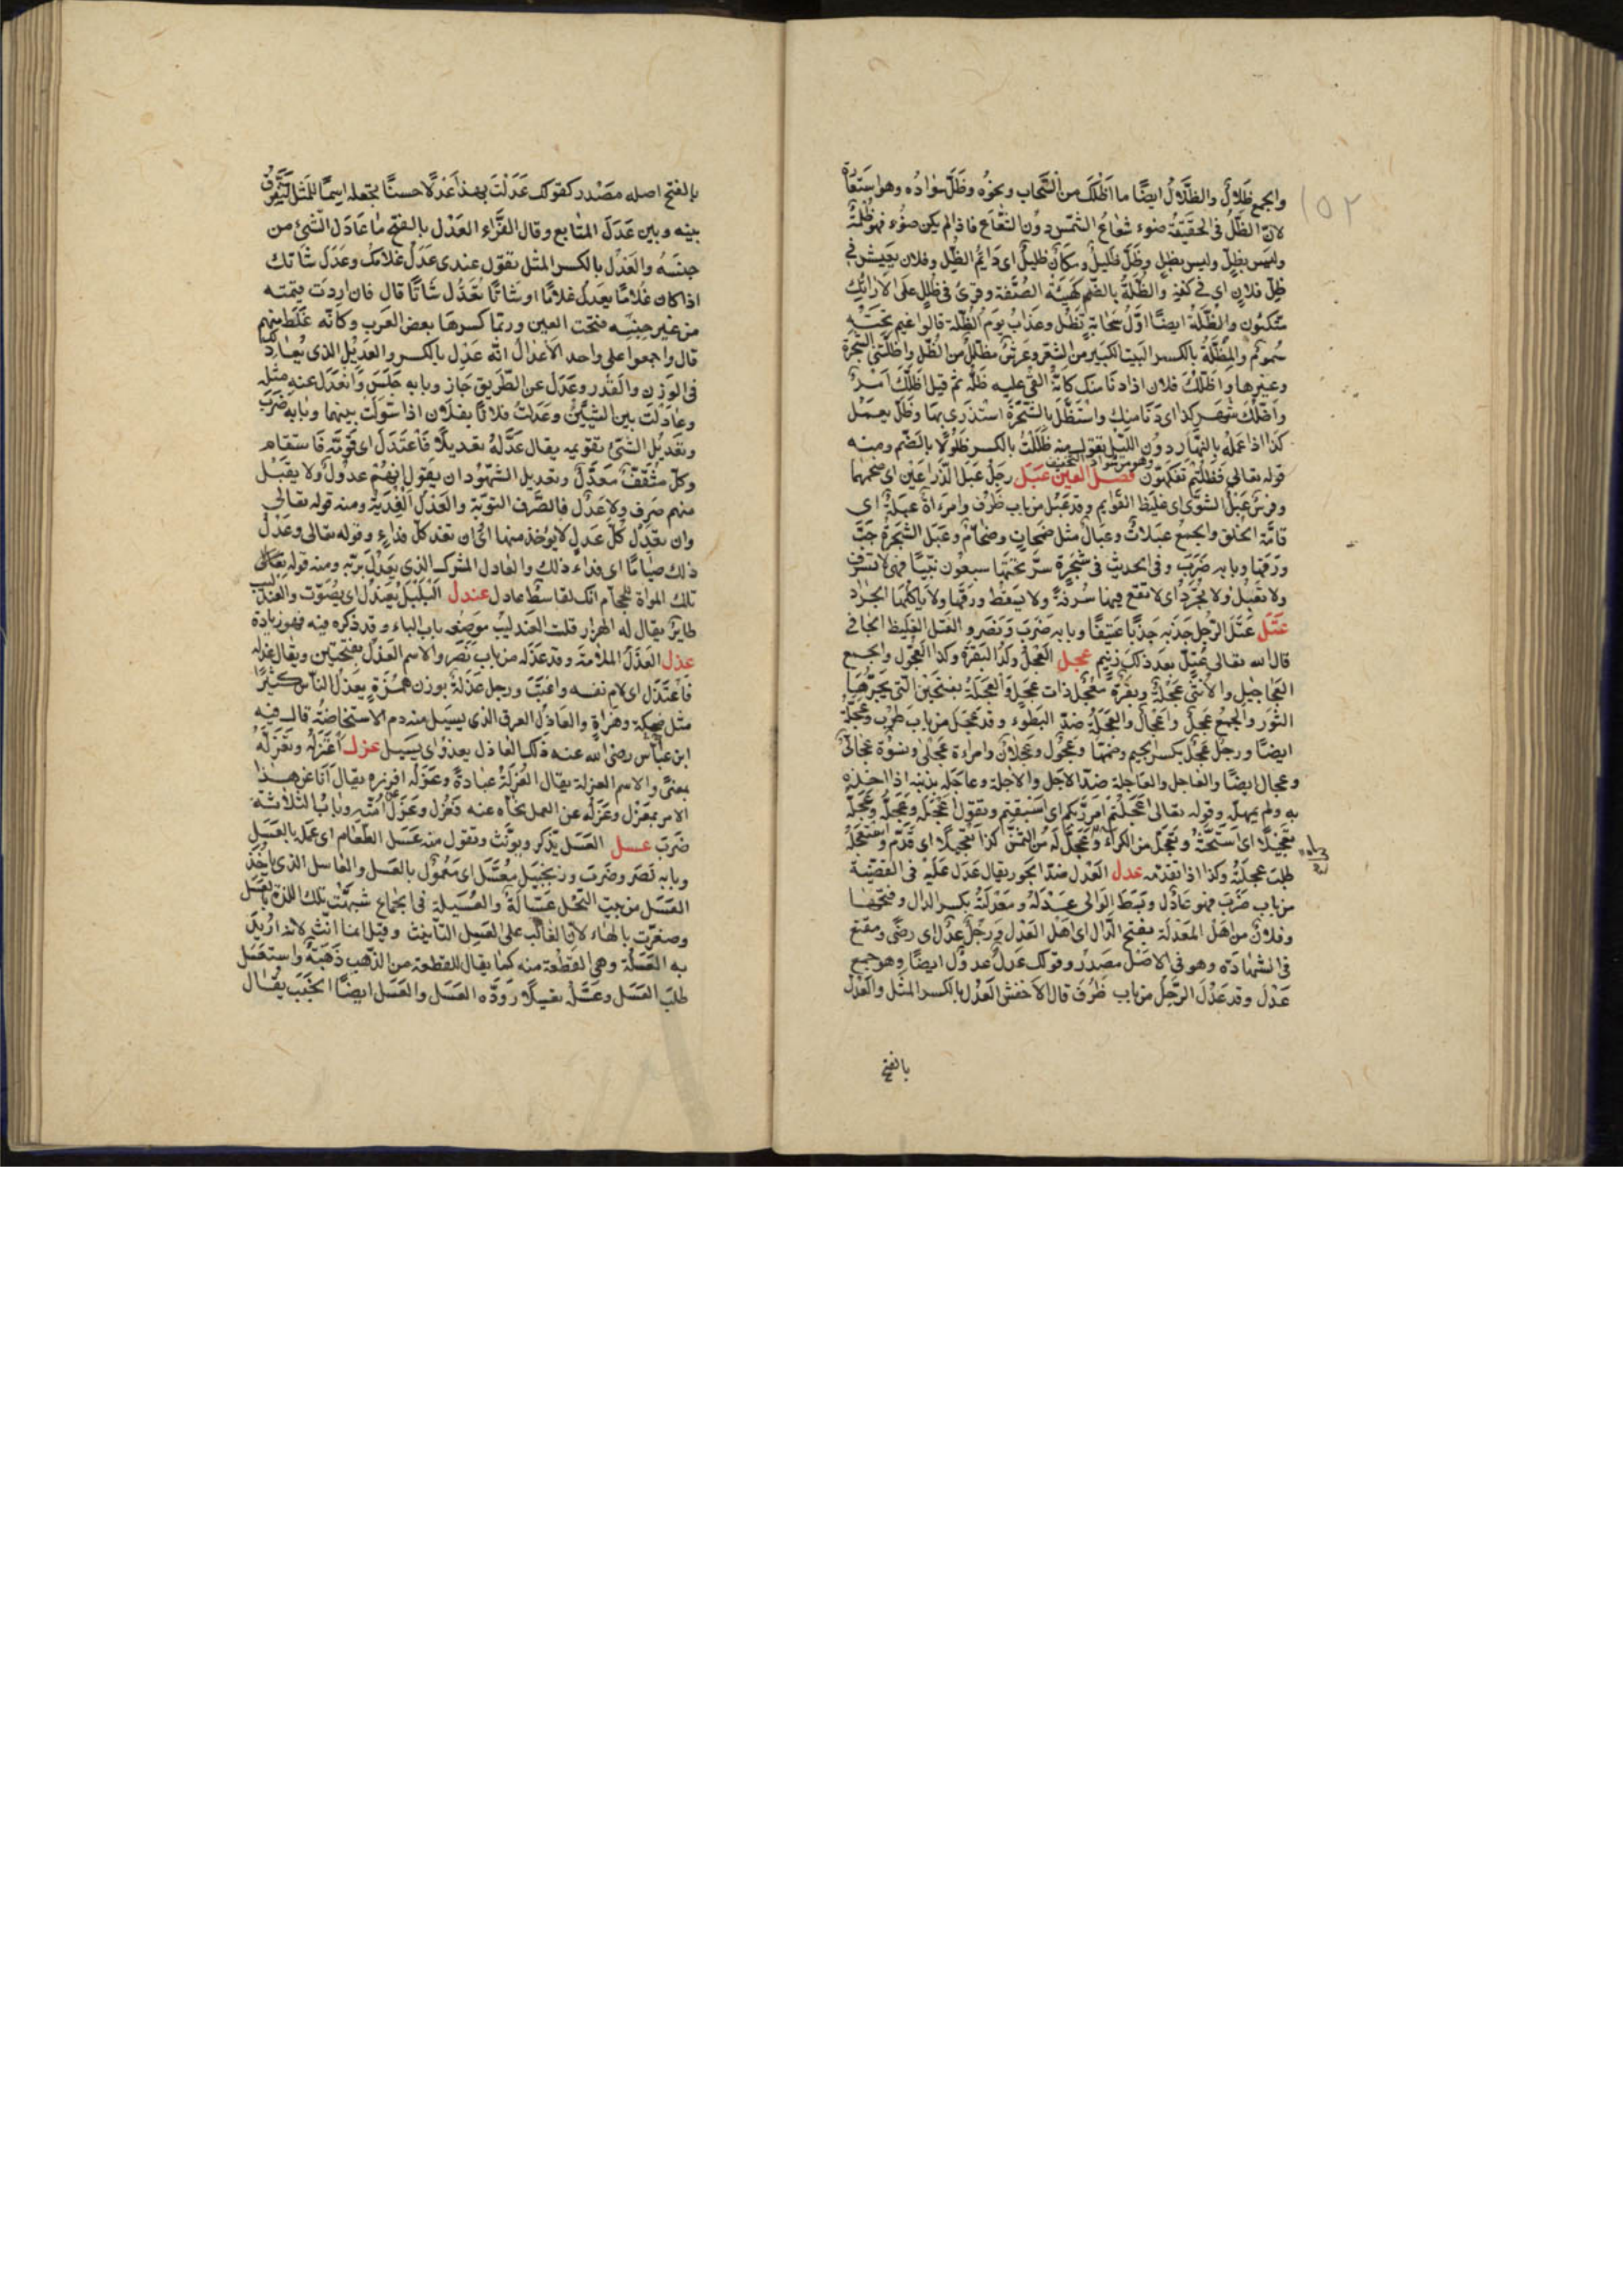 ١٥٢
والجمع ظِلالٌ والظِّلَالُ ايضًا ما اَظَلَّكَ من السَّحاب ونحوُه وظِلّ سَوادُه وهو استعارة
لانّ الظلّ فى الحَقيقة ضوء شُعاعُ الشمس دون الشُّعَاع فاذا لم يكن ضوُء فهو ظُلمَةٌ
وليس بظلّ وليس بظل وظلّ ظليلٌ ومكان ظليلٌ اى دَايمُ الظّلِ وفلان يَعِيشُ فى
ظِلّ فلانٍ اى فى كنفهِ والظُلّةُ بالضّم كهَيْئة الصُفّة وقرئ فى ظُلل على الارائكِ
متّكئون والظُلّة ايضًا اوّلُ سحابةٍ تُظِلّ وعذابُ يوم الظُلّة قالوا غيم تحتَهُ
سمومٌ والمِظَلّةُ بالكسر البيت الكبير من الشعَر وعرشٌ مظلّلٌ من الظِل واظلّتنى الشجَرةُ
وغيرها واظلّك فلان اذا دنا منك كانّه القى عليه ظلّه ثم قيل اظلّكَ امرٌ
واظلّك شهر كذا اى دنا منك واستَظَلّ بالشجَرة استذرى بها وظَلّ يعمل
كذا اذا عمله بالنّهار دون اللّيل تقول منه ظَلِلْتُ بالكسر ظُلُولًا بالضَّم ومنه
قوله تعالى فظَلْتُم تفكّهون وهو من شواذ التخفيف فصل العين عَبل رجلٌ عبل الذّراعَين اى ضخمهما
وفرسٌ عَبْلُ الشوَى اى غليظ القوايم وقد عَبُل من باب ظَرُف وامرَاة عبلة اى
تامّة الخلق والجمع عبلاتٌ وعِبال مثل ضخماتٍ وضخامٍ وعَبَل الشجَرة حتّ
ورقها وبابه ضرَبَ وفى الحديث فى شجَرةٍ سرّ تحتها سبعون نبيّا فهى لا تُسرَف
ولا تُعبَل ولا تُجرَدُ اى لا تقع فيها سُرفةٌ ولا يسقط ورقها ولا ياكلها الجراد
عتل عَتَل الرجل جذبه جذبًا عنيفًا وبابه ضَرَبَ ونَصَر والعتلّ الغليظ الجافى
قال الله تعالى عُتلّ بعد ذلك زنيم عجل العِجْلُ ولد البقرة وكذا العِجّول والجمع
العَجاجيل والانثى عجلة وبقرة مُعْجِل ذات عِجل والعَجَلة بفتحتين التى يجرّها
الثور والجمع عَجَلٌ واعجال والعَجَلة ضدّ البطوء وقد عَجِل من باب طَرِب وعَجَلة
ايضًا ورجل عجِل بكسر الجيم وضمها وعَجُول وعجلان وامراة عجلى ونسوة عجالى
وعجال ايضًا والعاجل والعاجلة ضدّ الآجل والآجلة وعاجله بذنبه اذا اخذه
به ولم يمهله وقوله تعالى اعَجِلتُم امر ربّكم اى اسبقتم وتقول اعجله وعجّله
تعجيلًا اى استحثّه وتعجّل من الكراء وعجّل له من الثمن كذا تعجيلًا اى قدّم واستعجله
طلب عجلته وكذا اذا تقدّمه عدل العَدْل ضدّ الجور يقال عَدَل عليه فى القضيّة
من باب ضَرَبَ فهو عادل وبسَط الوالى عدله ومعدلته بكسر الدال وفتحها
وفلان من اهل المعدَلة بفتح الدّال اى اهل العدل ورجل عدلٌ اى رضًى ومقنع
فى الشهادة وهو فى الاصل مصدر وقولك عدلٌ عدولٌ ايضًا وهو جمع
عدل وقد عَدُل الرجل من باب ظَرُف قال الاخفش العِدْل بالكسر المثل والعَدل
بالفتح
بالفتح اصله مصدر كقولك عَدَلْتَ بهذا عَدلًا حسنًا تجعله اسمًا للمثل لتفرّق
بينه وبين عدل المتاع وقال الفرّاء العَدْل بالفتح ما عادَل الشئ من
جنسه والعِدل بالكسر المثل تقول عندى عِدل غلامك وعدل شاتك
اذا كان غلامًا يعدل غلامًا او شاتًا تعدل شاتًا قال فان اردت قيمته
من غير جنسه فتحت العين وربّما كسرها بعض العرب وكانّه غلط منهم
قال واجمعوا على واحد الاعدال انّه عدل بالكسر والعديل الذى يعادلك
فى الوزن والقدر وعَدَل عن الطّريق جاز وبابه جلس وانعدل عنه مثله
وعادلت بين الشيئين وعدلت فلانًا بفلان اذا سوّيت بينهما وبابه ضَرَبَ
وتعديل الشئ تقويمه يقال عدّله تعديلًا فاعتدل اى قوّمه فاستقام
وكلّ مثقّف معدّل وتعديل الشهود ان يقول انّهم عدول ولا يقبل
منهم صرف ولا عدل فالصّرف التوبة والعدل الفدية ومنه قوله تعالى
وان تعدل كلّ عدل لا يؤخذ منها اى ان تفد كلّ فداءٍ وقوله تعالى وعدل
ذلك صيامًا اى فداء ذلك والعادل المشرك الذى يعدل بربّه ومنه قوله
تلك المراة للحجّام انّك لقاسط عادل عندل البلبل يعندل اى يصوّت والعندليب
طاير يقال له الهزار قلت العندليب موضعه باب الباء وقد ذكره فيه فهو زيادة
عذل العَذْل الملامة وقد عذله من باب نَصَر والاسم العذل بفتحتين ويقال عذله
فاعتذل اى لام نفسه واعتب ورجل عذلة بوزن همزة يعذل الناس كثيرًا
مثل ضحكة وهزاة والعاذل العرق الذى يسيل منه دم الاستحاضة قال فيه
ابن عبّاس رضى الله عنه ذلك العاذل يعذو اى يسيل عزل اعتزله وتعزّله
بمعنًى والاسم العزلة يقال العزلة عبادة وعزله افرزه يقال انا عن هذا
الامر بمعزل وعزله عن العمل نحّاه عنه فعزل وعزل عن امته وباب الثلاثة
ضرب عسل العسل يذكّر ويؤنّث وتقول منه عسل الطّعام اى عمله بالعسل
وبابه نصر وضرب وزنجبيل معسّل اى معمول بالعسل والعاسل الذى ياخذ
العسل من بيت النّحل عسّالة والعُسَيلة فى الجماع شبهت تلك اللذة بالعسل
وصغرت بالهاء لانّ الغالب على العسل التانيث وقيل انما انّث لانه اريد
به العسلة وهى القطعة منه كما يقال للقطعة من الذّهب ذهبة واستعسل
طلب العسل وعسّله تعسيلًا زوّده العسل والعسل ايضًا الخبب يقال